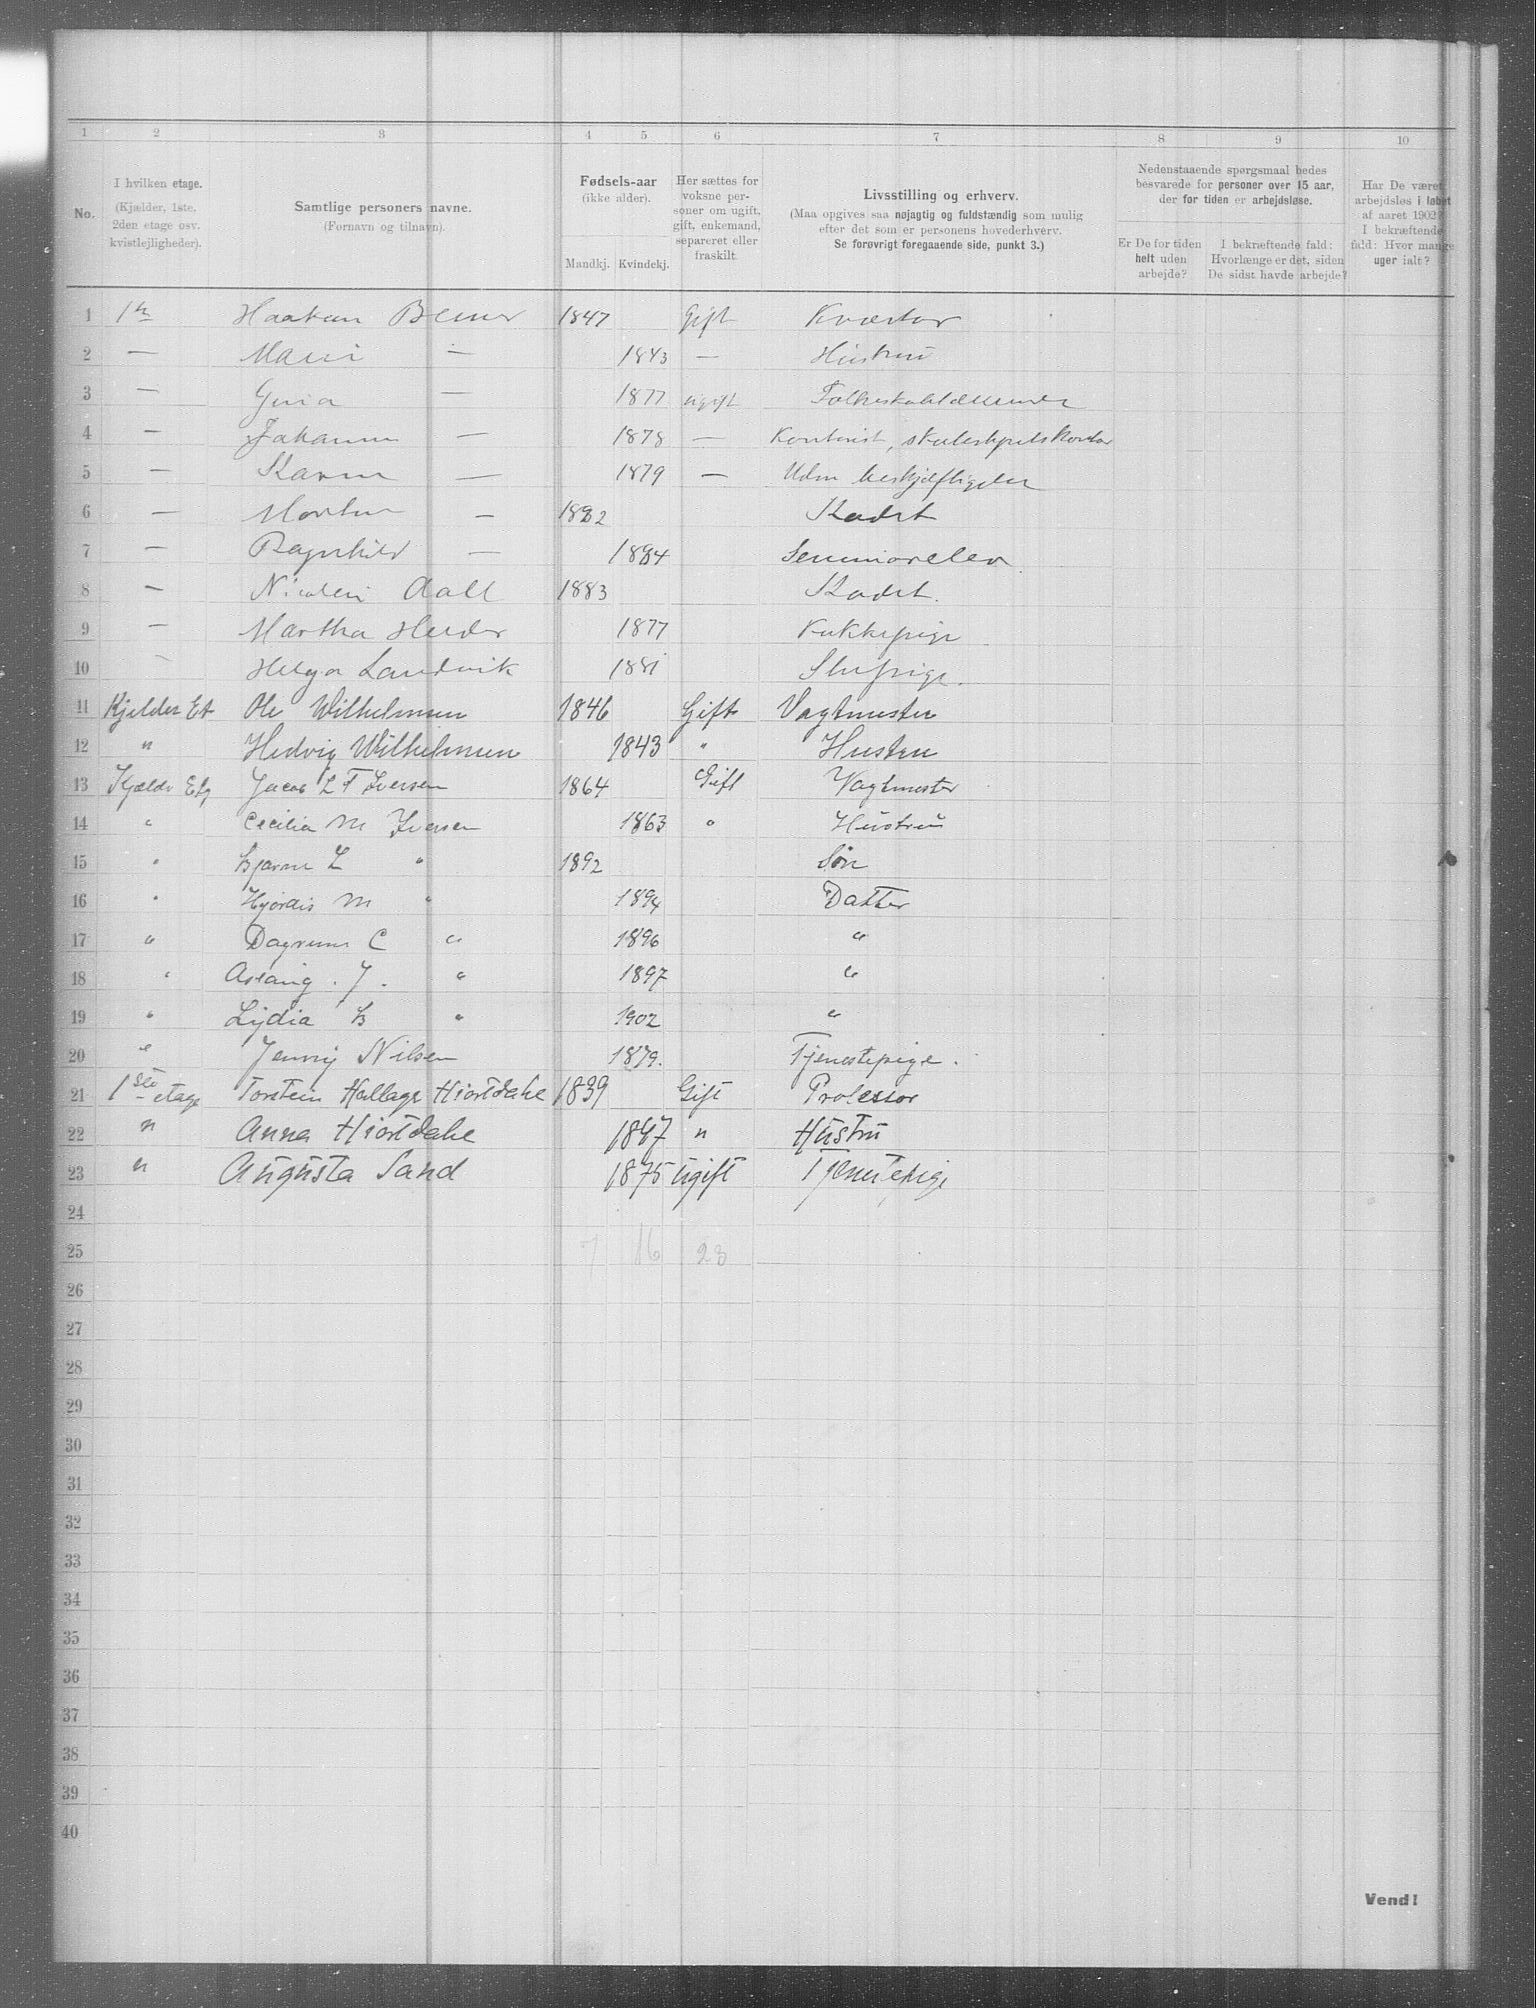 1 2 3 4 5 6 7 8 9 10
No.
I hvilken etage.
(Kjælder, 1ste.
2den etage osv.
kvistlejligheder).
Samtlige personers navne.
(Fornavn og tilnavn).
Fødsels-aar
(ikke alder).
Mandkj. Kvindekj.
Her sættes for
voksne per-
soner om ugift,
gift, enkemand,
separeret eller
fraskilt.
Livsstilling og erhverv.
(Maa opgives saa nøjagtig og fuldstændig som mulig
efter det som er personens hovederhverv.
Se forøvrigt foregaaende side, punkt 3.)
Nedenstaaende spørgsmaal bedes
besvarede for personer over 15 aar,
der for tiden er arbejdsløse.
Er De for tiden
helt uden
arbejde?
I bekræftende fald:
Hvorlænge er det, siden
De sidst havde arbejde?
Har De været
arbejdsløs i løbet
af aaret 1902?
I bekræftende
fald: Hvor mange
uger ialt?
1 Haakon Berner 1847 Gift Kvæstor
2 — Mari — 1843 — Hustru
3 — — 1877 ugift
4 — Johanne — 1878 — Kontorist,
5 — Karen — 1879 — Uden beskjæftigelse
6 — Morten — 1882 Kadet
7 — Ragnhild — 1884 Seminarelev
8 — Nicolai Aall 1883 Kadet.
9 — Martha 1877 Kokkepige
10 Helga Landvik 1881 Stuepige.
11 Kjelder Et Ole Wilhelmsen 1846 Gift Vagtmester
12 " Hedvig Wilhelmsen 1843 " Hustru
13 Kjælder Etg Jacob L T Iversen 1864 Gift Vagtmester
14 " Cecilia M Iversen 1863 " Hustru
15 " Bjarne L " 1892 Søn
16 " Hjørdis M " 1894 Datter
17 " Dagrun C " 1896 "
18 " Aslaug . J . " 1897 "
19 " Lydia B " 1902 "
20 " Jenny Nilsen 1879. Tjenestepige.
21 1ste etage Torstein Hallager Hiortdahl 1839 Gift Professor
22 " Anna Hiortdahl 1847 " Hustru
23 " Augusta Sand 1875 Ugift Tjenestepige
24
25 7 16 23
26
27
28
29
30
31
32
33
34
35
36
37
38
39
40
Vend!